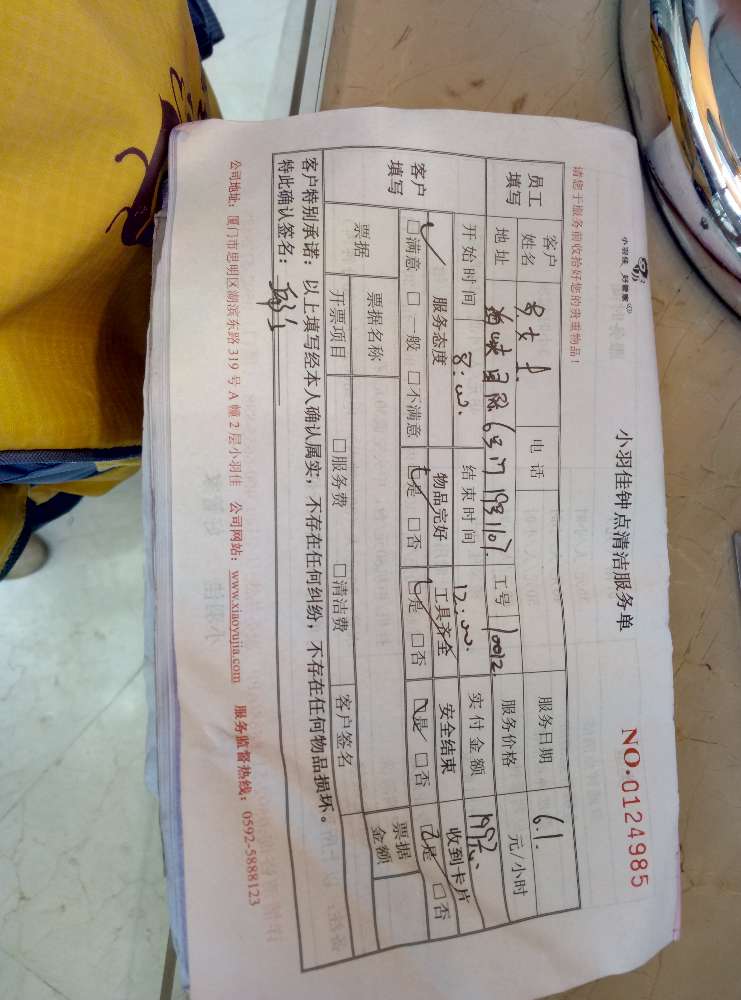 小羽佳 好管家
小羽佳钟点清洁服务单
NO.0124985
请您于服务前收拾好您的贵重物品!
员工填写 客户姓名 电话 服务日期 6.1.
地址 6号门 工号 10012 服务价格 元/小时
开始时间 8:00. 结束时间 12:00. 实付金额
客户填写 服务态度 物品完好 工具齐全 安全结束 收到卡片
☑满意 □一般 □不满意 ☑是 □否 ☑是 □否 ☑是 □否 ☑是 □否
票据 票据名称 客户签名 票据金额
开票项目 □服务费 □清洁费
客户特别承诺:以上填写经本人确认属实,不存在任何纠纷,不存在任何物品损坏。
特此确认签名:
公司地址:厦门市思明区湖滨东路 319 号 A 幢 2 层小羽佳 公司网站:www.xiaoyujia.com 服务监督热线:0592-5888123